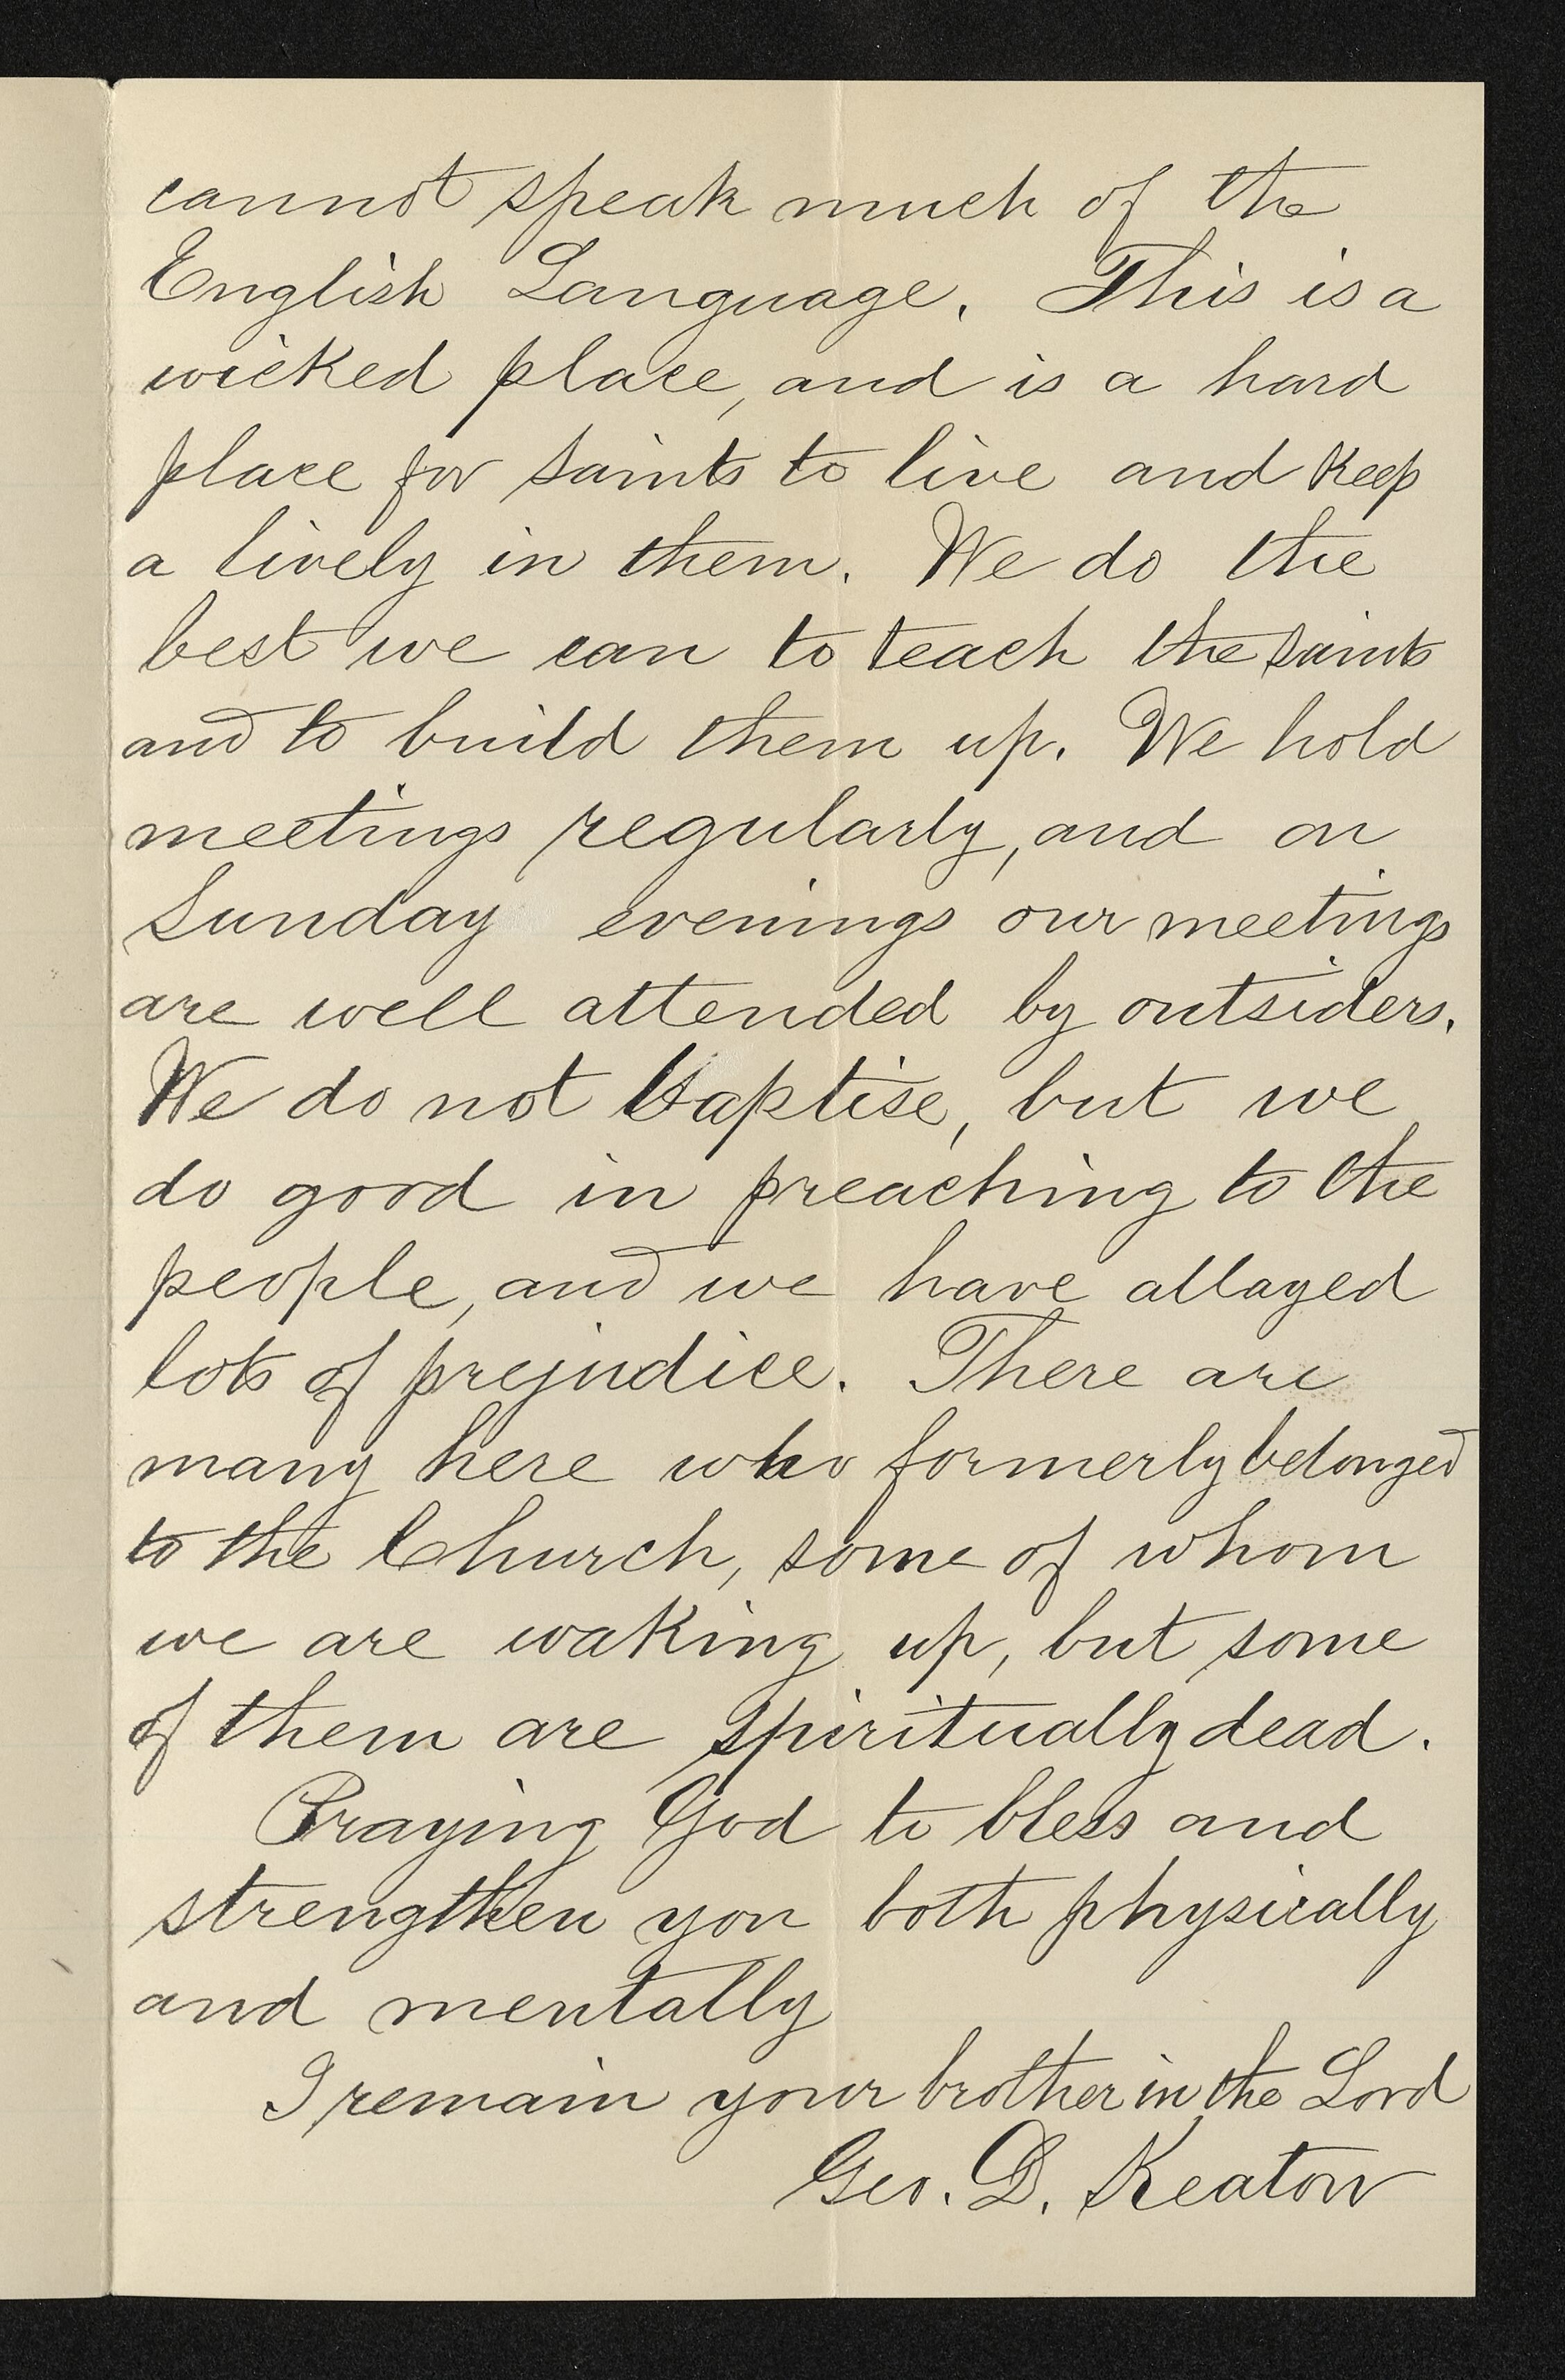 cannot speak much of the
English Language. This is a
wicked place, and is a hard
place for saints to live and keep
a lively in them. We do the
best we can to teach the saints
and to build them up. We hold
meetings regularly, and on
Sunday evenings our meetings
are well attended by outsiders.
We do not baptise, but we
do good in preaching to the
people, and we have allayed
lots of prejudice. There are
many here who formerly belonged
to the Church, some of whom
we are waking up, but some
of them are spiritually dead.
Praying God to bless and
strengthen you both physically
and mentally
I remain your brother in the Lord
Geo. D. Keaton